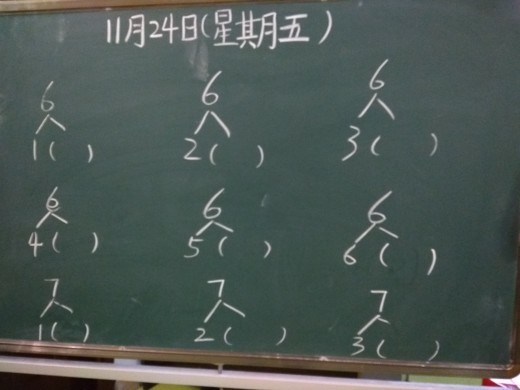 11月24日(星期五)
6 6 6
1( ) 2( ) 3( )
6 6 6
4( ) 5( ) 6( )
7 7 7
1( ) 2( ) 3( )